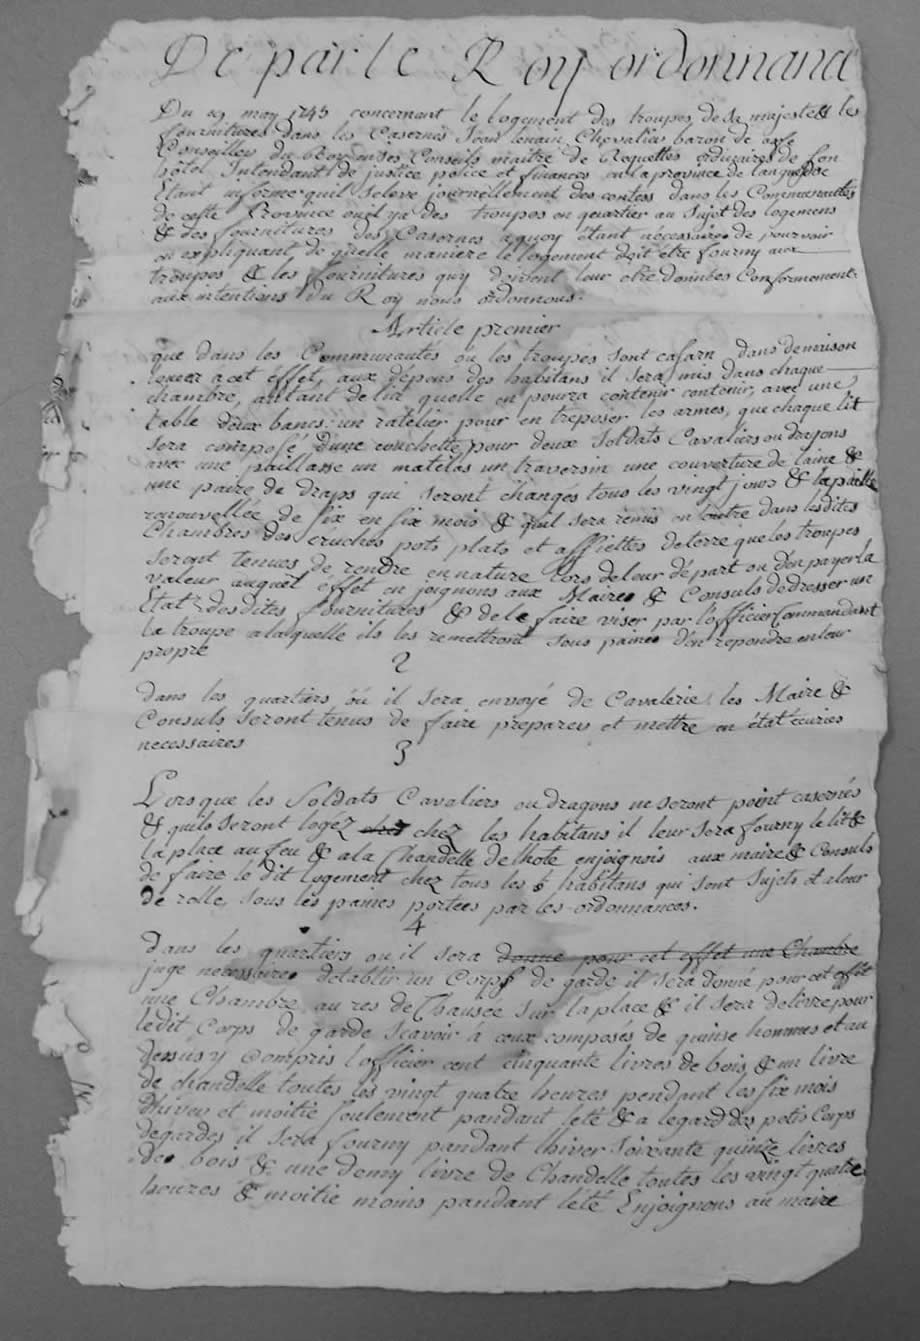 De par le Roy ordonnanc
Du 19 may 1745 concernant le logement des troupes de sa majesté & les
fournitures dans les Casernes Jean lenain Chevalier baron de asfe
Conseiller du Roy en ses Conseils maitre de Requettes ordinaires de son
hôtel Intendant de justice police et finances en la province de languedoc
Etant informé quil seleve journellement des contess dans les Communautés
de cette Province ou il ya des troupes en quartier au Sujet des logemens
& des fournitures des Casernes aquoy étant nécessaire de pourvoir
en expliquant de quelle maniere le logement doit être fourny aux
troupes & les fournitures quy doivent leur etre données Conformement
aux intentions du Roy nous ordonnons.
Article premier
que dans les Communautés ou les troupes sont casarn dans de maison
louer acet éffet, aux dépens des habitans il sera mis dans chaque
chambre, autant de lit quelle en poura contenir contenir, avec une
table deux bancs, un ratelier pour en treposer les armes, que chaque lit
sera composé d'une couchette pour deux Soldats Cavaliers ou dragons
avec une paillasse un matelas un traversin une couverture de laine &
une paire de draps qui seront changés tous les vingt jours & la paille
renouvellée de six en six mois & quil sera remis en outre dans lesdites
Chambres des cruches pots plats et assiettes de terre que les troupes
seront tenues de rendre en nature lors de leur départ ou d'en payer la
valeur auquel effet en joignons aux Maires & Consuls de dresser un
Etat desdites fournitures & de le faire viser par l'officier Commandant
la troupe alaquelle ils les remettront sous paine d'en repondre en leur
propre
2
dans les quartiers où il sera envoyé de Cavalerie les Maire &
Consuls seront tenus de faire preparer et mettre en état écuries
necessaires
3
Lorsque les Soldats Cavaliers ou dragons ne seront point casernés
& quils seront logez chez chez les habitans il leur sera fourny le lit &
la place au feu & ala Chandelle de lhote enjoignois aux maire & Consuls
de faire le dit logement chez tous les habitans qui sont Sujets et aleur
de rolle, sous les paines portées par les ordonnances.
4
dans les quartiers ou il sera donne pour cet effet une Chambre
juge necessaire detablir un Corps de garde il sera donné pour cet effet
une Chambre au res de Chausée sur la place & il sera delivré pour
ledit Corps de garde scavoir à ceux composés de quinse hommes et au
dessus y Compris l'officier cent cinquante livres de bois & un livre
de chandelle toutes les vingt quatre heures pendant les six mois
dhiver et moitié seulement pandant leté & a legard des petis Corps
degardes il sera fourny pandant lhiver soixante quinze livres
de bois & une demy livre de Chandelle toutes les vingt quatre
heures & moitié moins pandant l'été Enjoignons au maire